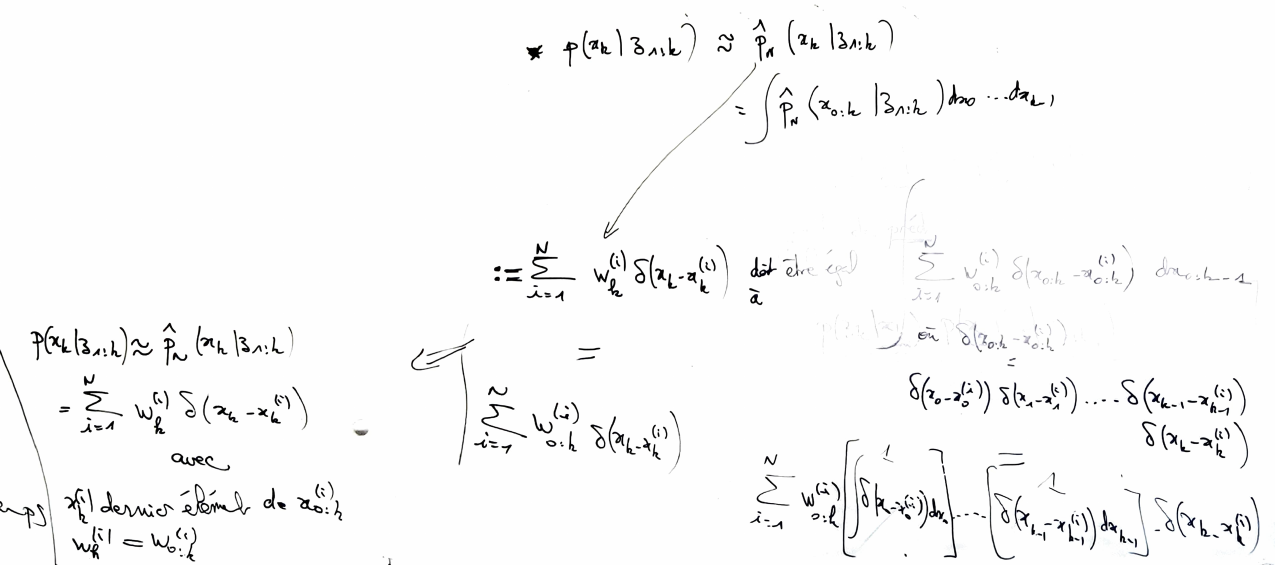 * p(x_k|z_{1:k}) ≈ p̂_N(x_k|z_{1:k})
= ∫ p̂_N(x_{0:k}|z_{1:k}) dx_0 ... dx_{k-1}
:= Σ_{i=1}^{N} w_k^{(i)} δ(x_k-x_k^{(i)}) doit être égal ∫ Σ_{i=1}^{N} w_{0:k}^{(i)} δ(x_{0:k}-x_{0:k}^{(i)}) dx_{0:k-1}
à
où δ(x_{0:k}-x_{0:k}^{(i)})
=
δ(x_0-x_0^{(i)}) δ(x_1-x_1^{(i)}) .... δ(x_{k-1}-x_{k-1}^{(i)})
δ(x_k-x_k^{(i)})
=
Σ_{i=1}^{N} w_{0:k}^{(i)} [∫δ(x_0-x_0^{(i)})dx_0] ..... [∫δ(x_{k-1}-x_{k-1}^{(i)})dx_{k-1}] . δ(x_k-x_k^{(i)})
1 1
=
Σ_{i=1}^{N} w_{0:k}^{(i)} δ(x_k-x_k^{(i)})
⇐
p(x_k|z_{1:k}) ≈ p̂_N(x_k|z_{1:k})
= Σ_{i=1}^{N} w_k^{(i)} δ(x_k-x_k^{(i)})
avec
x_k^{(i)} dernier élément de x_{0:k}^{(i)}
w_k^{(i)} = w_{0:k}^{(i)}